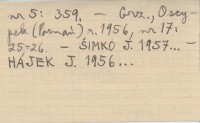 nr 5: 359. – Grz., Oscy-
pek (Poznań) r. 1956, nr 17:
25-26. – ŠIMKO J. 1957... –
HÁJEK J. 1956...